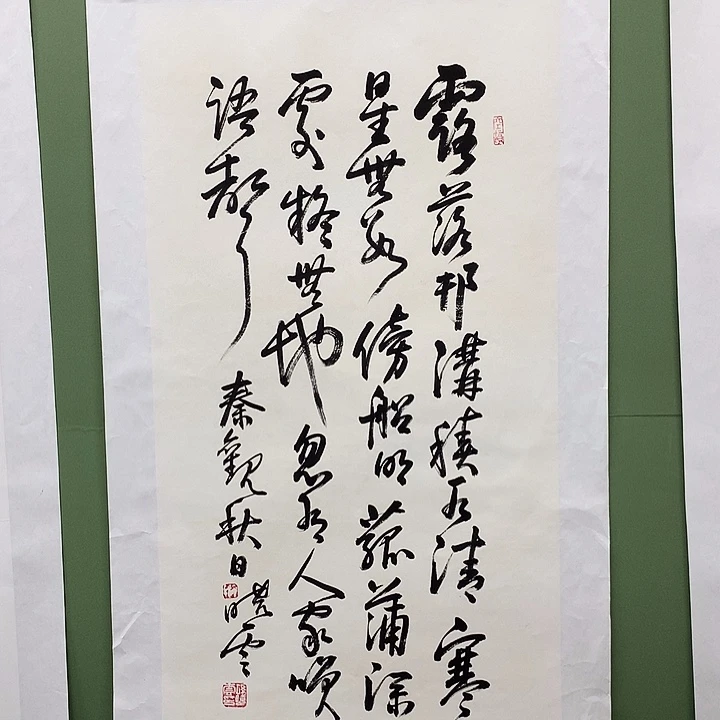 霜落邗溝積水清寒
星無數傍船明菰蒲深
處疑無地忽有人家咲
語聲
秦觀秋日曉雲